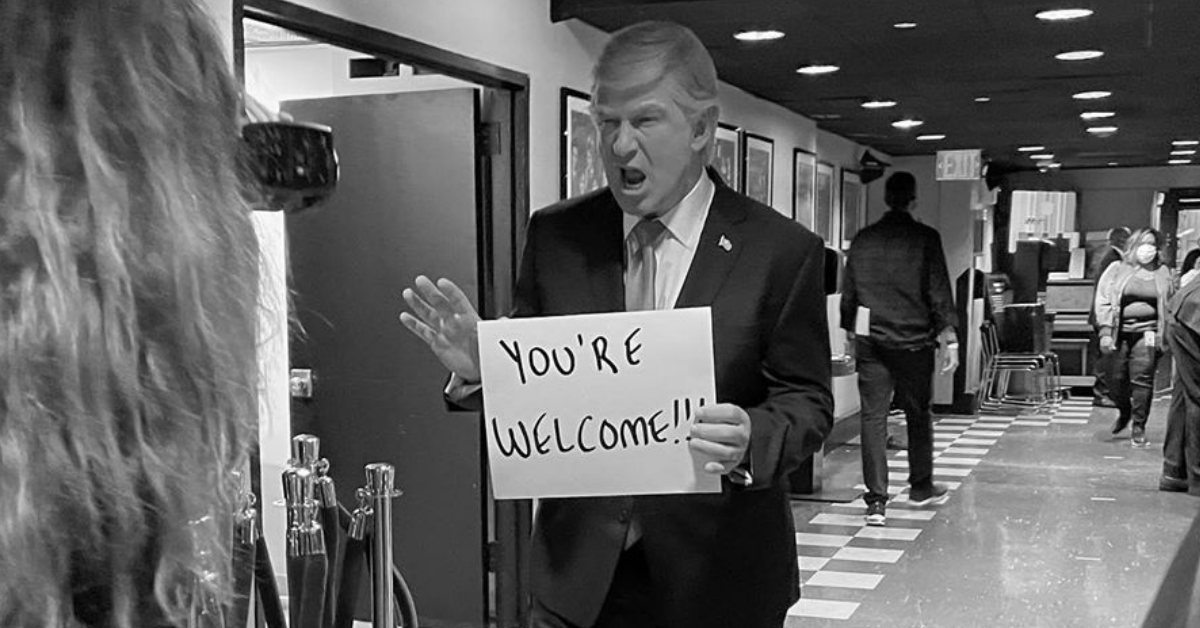 EXIT
YOU'RE
WELCOME!!!